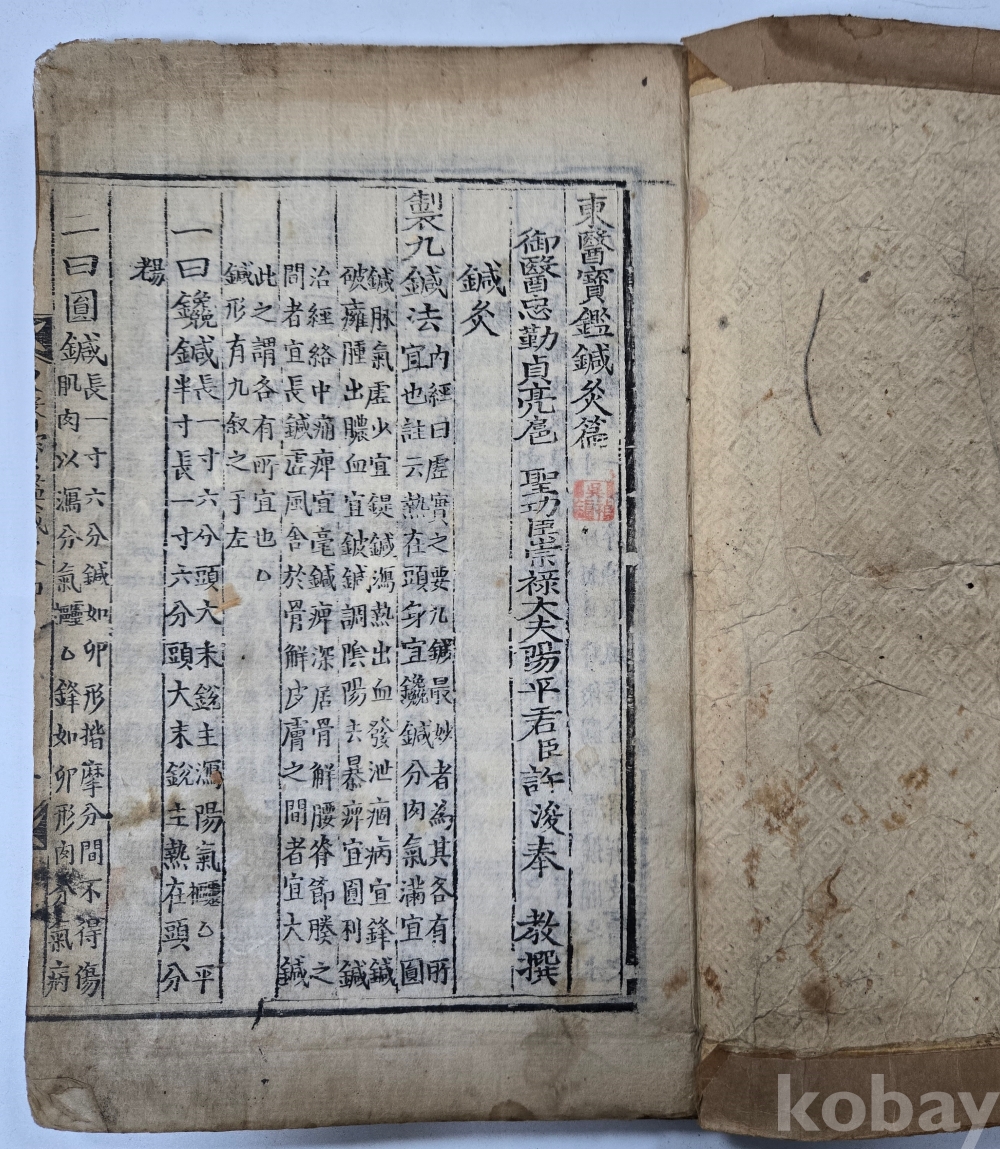 東醫寶鑑鍼灸篇
御醫忠勤貞亮扈 聖功臣崇祿大夫陽平君臣許浚奉 教撰
鍼灸
製九鍼法
內經曰虛實之要九鍼最妙者為其各有所
宜也註云熱在頭身宜鑱鍼分肉氣滿宜圓
鍼脉氣虛少宜鍉鍼瀉熱出血發泄痼病宜鋒鍼
破癰腫出膿血宜鈹鍼調陰陽去暴痺宜圓利鍼
治經絡中痛痺宜毫鍼痺深居骨解腰脊節腠之
間者宜長鍼虛風舍於骨解皮膚之間者宜大鍼
此之謂各有所宜也○
鍼形有九叙之于左
一曰鑱鍼
長一寸六分頭大末銳主瀉陽氣靈樞○平
半寸長一寸六分頭大末銳主熱在頭分
二曰圓鍼
長一寸六分鍼如卵形揩摩分間不得傷
肌肉以瀉分氣靈樞○鋒如卵形肉分氣病
kobay